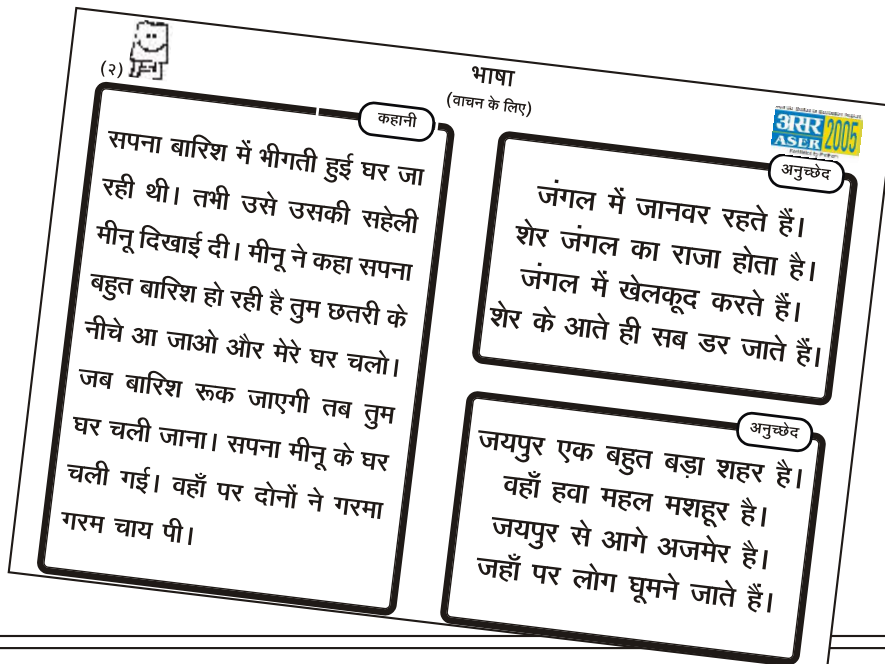 (२)
भाषा
(वाचन के लिए)
कहानी
सपना बारिश में भीगती हुई घर जा
रही थी। तभी उसे उसकी सहेली
मीनू दिखाई दी। मीनू ने कहा सपना
बहुत बारिश हो रही है तुम छतरी के
नीचे आ जाओ और मेरे घर चलो।
जब बारिश रूक जाएगी तब तुम
घर चली जाना। सपना मीनू के घर
चली गई। वहाँ पर दोनों ने गरमा
गरम चाय पी।
असर
ASER
2005
Facilitated by Pratham
अनुच्छेद
जंगल में जानवर रहते हैं।
शेर जंगल का राजा होता है।
जंगल में खेलकूद करते हैं।
शेर के आते ही सब डर जाते हैं।
अनुच्छेद
जयपुर एक बहुत बड़ा शहर है।
वहाँ हवा महल मशहूर है।
जयपुर से आगे अजमेर है।
जहाँ पर लोग घूमने जाते हैं।